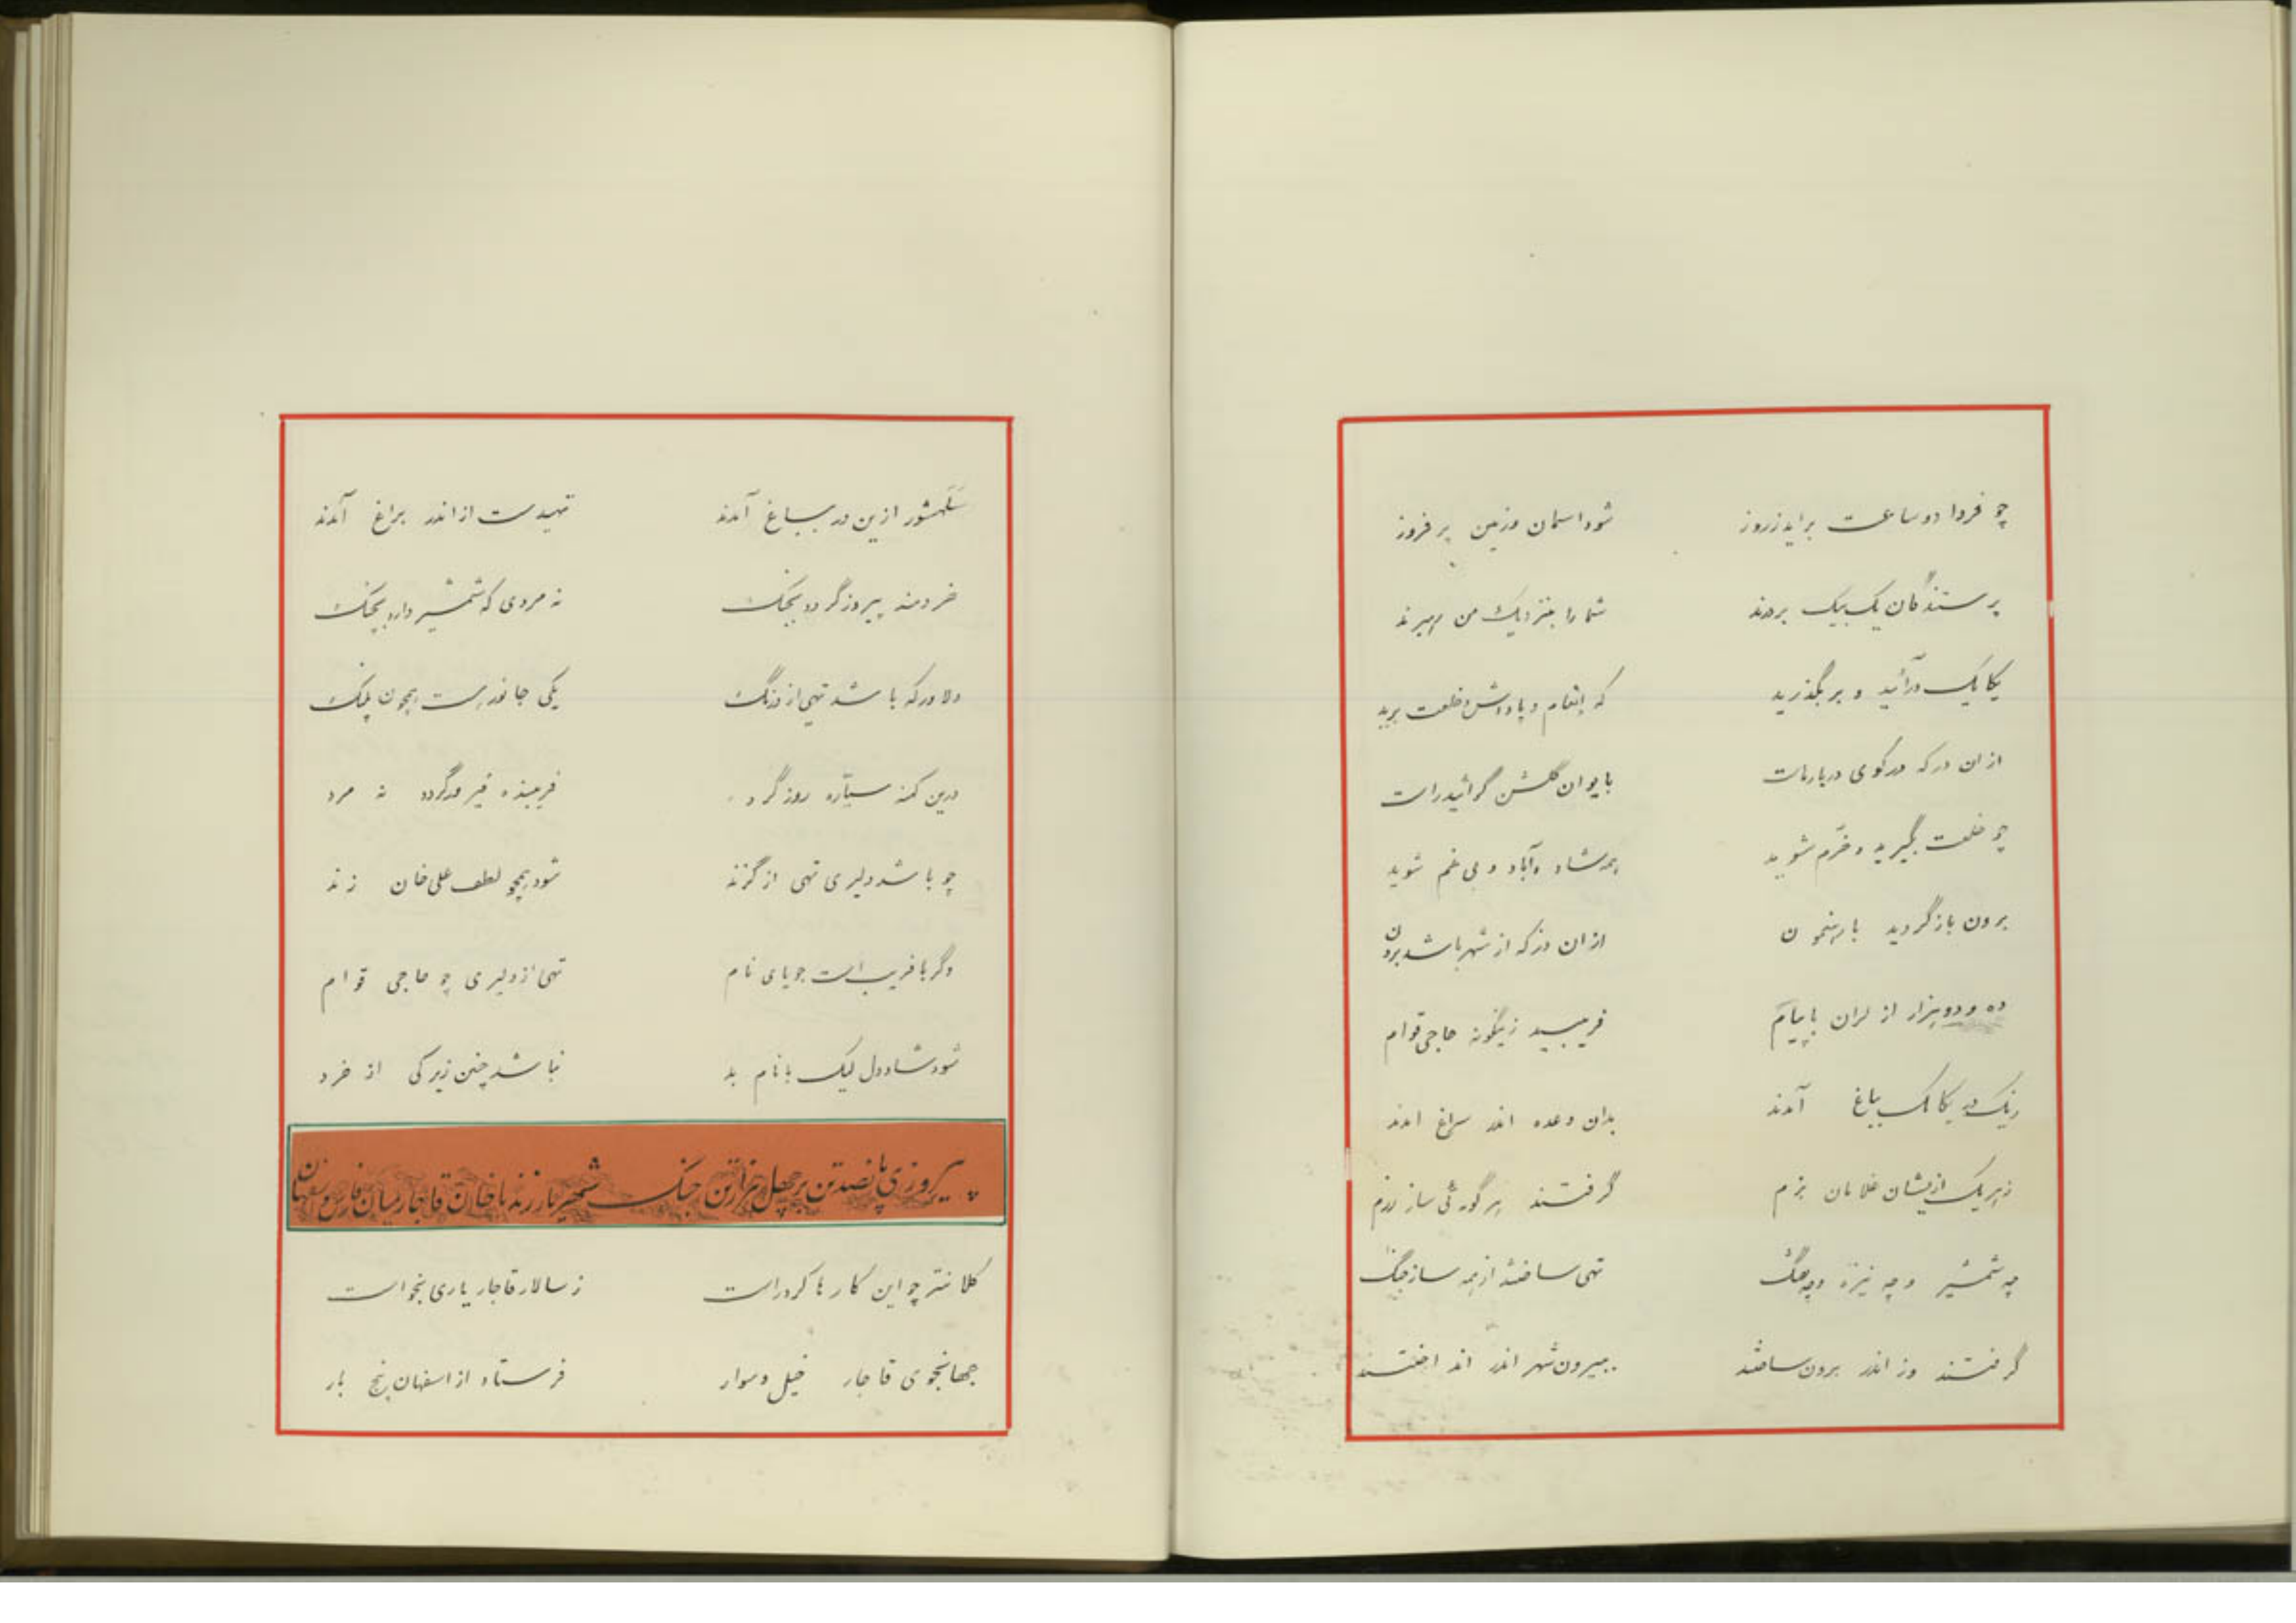 چو فردا دو ساعت برآید ز روز شود اسمان و زمین پر فروز
پرستندگان یک بیک بردند شما را بنزدیک من میبرند
یکایک درآئید و بر بگذرید که انعام و پاداش و خلعت برید
از ان در که در کوی دربار ماست بایوان گلشن گرائید راست
چو خلعت بگیرید و خرّم شوید همه شاد و آباد و بی غم شوید
برون باز گردید با رهنمون از ان در که از شهر باشد برون
ده و دو هزار از لران با پیام فریبید زینگونه حاجی قوام
یکایک بباغ آمدند بدان وعده اندر سراغ امدند
ز هر یک ازیشان غلامان بزم گرفتند هر گونه ئی ساز رزم
چه شمشیر و چه نیزه و چه تهی ساختند از همه ساز جنگ
گرفتند وز اندر برون ساختند ببیرون شهر اندر اند اختند
سلحشور ازین در بباغ آمدند تهیدست از اندر براغ آمدند
خردمند پیروز گردد بجنگ نه مردی که شمشیر دارد بچنگ
دلاور که باشد تهی از درنگ یکی جانور است همچون پلنگ
درین کهنه سیّاره روز گرد فریبنده فیروز گردد نه مرد
چو باشد دلیری تهی از گزند شود همچو لطف علی خان زند
وگر با فریب است جویای نام تهی از دلیری چو حاجی قوام
شود شاد دل لیک با نام بد نباشد چنین زیرکی از خرد
پیروزی پانصد تن بر چهل هزار تن جنگ شهریار زند با خان قاجار میان فارس و سپاهان
کلانتر چو این کار ها کرد راست ز سالار قاجار یاری بخواست
جهانجوی قاجار خیل و سوار فرستاد از اسفهان پنج بار